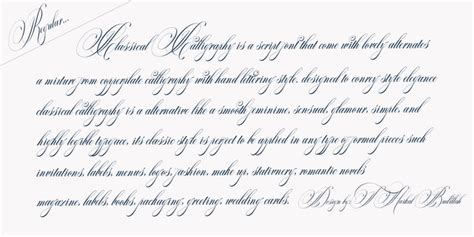 Regular...
Classical Calligraphy is a script font that come with lovely alternates
a mixture from copperplate calligraphy with hand lettering style. designed to convey style elegance
classical calligraphy is a alternative like a smooth, feminine, sensual, glamour, simple, and
highly legible typeface, its classic style is perfect to be applied in any type of formal pieces such
invitations, labels, menus, logos, fashion, make up, stationery, romantic novels
magazine, labels, books, packaging, greeting, wedding cards. Design by